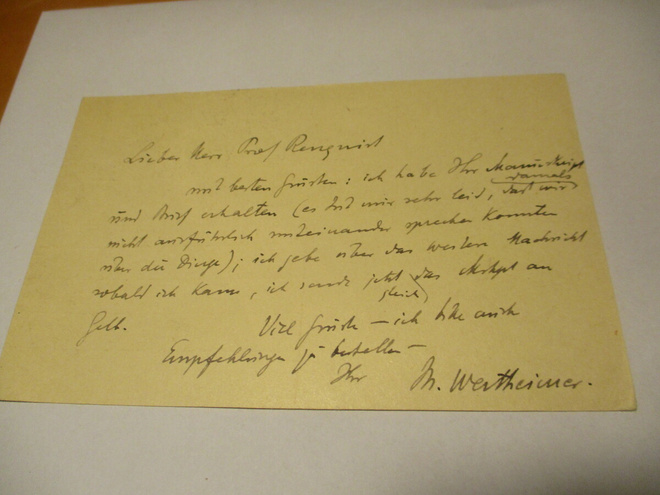 Lieber Herr Prof Renqvist
mit besten Grüssen: ich habe Ihr Manuskript
damals
und Brief erhalten (es tut mir sehr leid, dass wir
nicht ausführlich miteinander sprechen konnten
über die Dinge); ich gebe über das weitere Nachricht
sobald ich kann, ich sende jetzt das Mskpt an
gleich
Gelb.
Viele Grüsse — ich bitte auch
Empfehlungen zu bestellen —
Ihr M. Wertheimer.